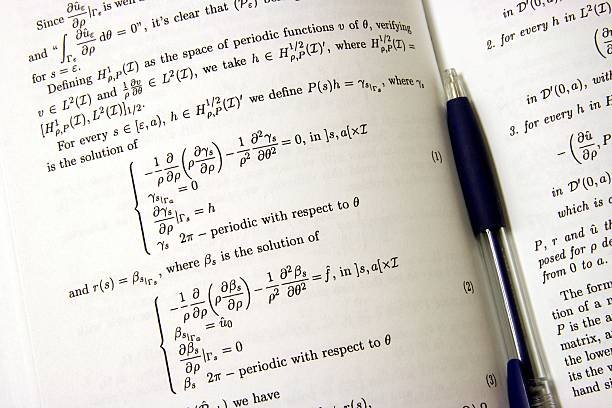 Since ∂ûε/∂ρ|Γε is well
and "∫Γε ∂ûε/∂ρ dθ = 0", it's clear that (Pε)
for s = ε.
Defining H¹ρ,P(I) as the space of periodic functions v of θ, verifying
v ∈ L²(I) and 1/ρ ∂v/∂θ ∈ L²(I), we take h ∈ H^{1/2}ρ,P(I)', where H^{1/2}ρ,P(I) =
[H¹ρ,P(I), L²(I)]1/2.
For every s ∈ [ε, a), h ∈ H^{1/2}ρ,P(I)' we define P(s)h = γs|Γs, where γs
is the solution of
−1/ρ ∂/∂ρ (ρ ∂γs/∂ρ) − 1/ρ² ∂²γs/∂θ² = 0, in ]s, a[×I
γs|Γa = 0
(1)
∂γs/∂ρ|Γs = h
γs 2π − periodic with respect to θ
and r(s) = βs|Γs, where βs is the solution of
−1/ρ ∂/∂ρ (ρ ∂βs/∂ρ) − 1/ρ² ∂²βs/∂θ² = f̂, in ]s, a[×I
βs|Γa = û0
(2)
∂βs/∂ρ|Γs = 0
βs 2π − periodic with respect to θ
we have
(3)
in D'(0, a)
2. for every h in L²(I)
in D'(0, a), with
3. for every h in H
−(∂û/∂ρ, P
in D'(0, a)
which is a
P, r and û th
posed for ρ de
from 0 to a.
The form
tion of a n
P is the a
matrix, a
the lower
its the v
hand si